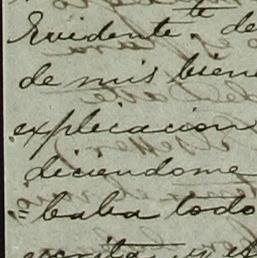 Evidente. de
de mis bien
explicacion
diciendome
=baba todo
escrita y el